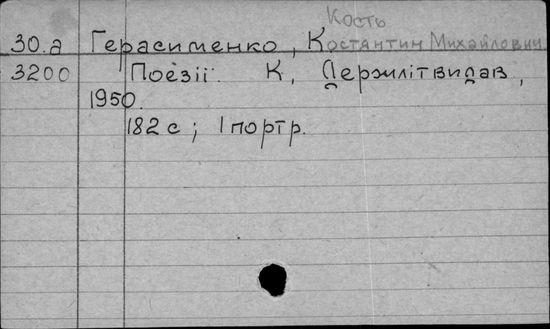 Кость
30.а Герасименко, Костантин Михайлович.
3200 Поезії. К, Держлітвидав,
1950.
182 с; 1 портр.